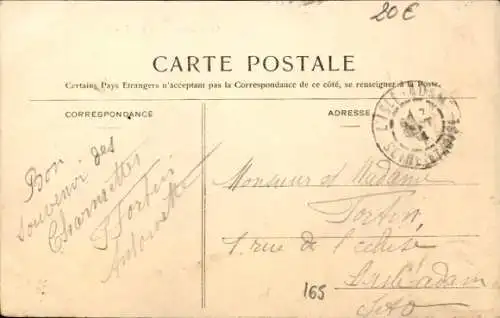 20€
CARTE POSTALE
Certains Pays Etrangers n'acceptant pas la Correspondance de ce côté, se renseigner à la Poste.
CORRESPONDANCE
ADRESSE
L'ISLE-ADAM
Bon
souvenir des
Charmettes
Fortin
Antoinette
Monsieur et Madame
Fortin,
1, rue de l'écluse
L'isle-adam
S et O
165